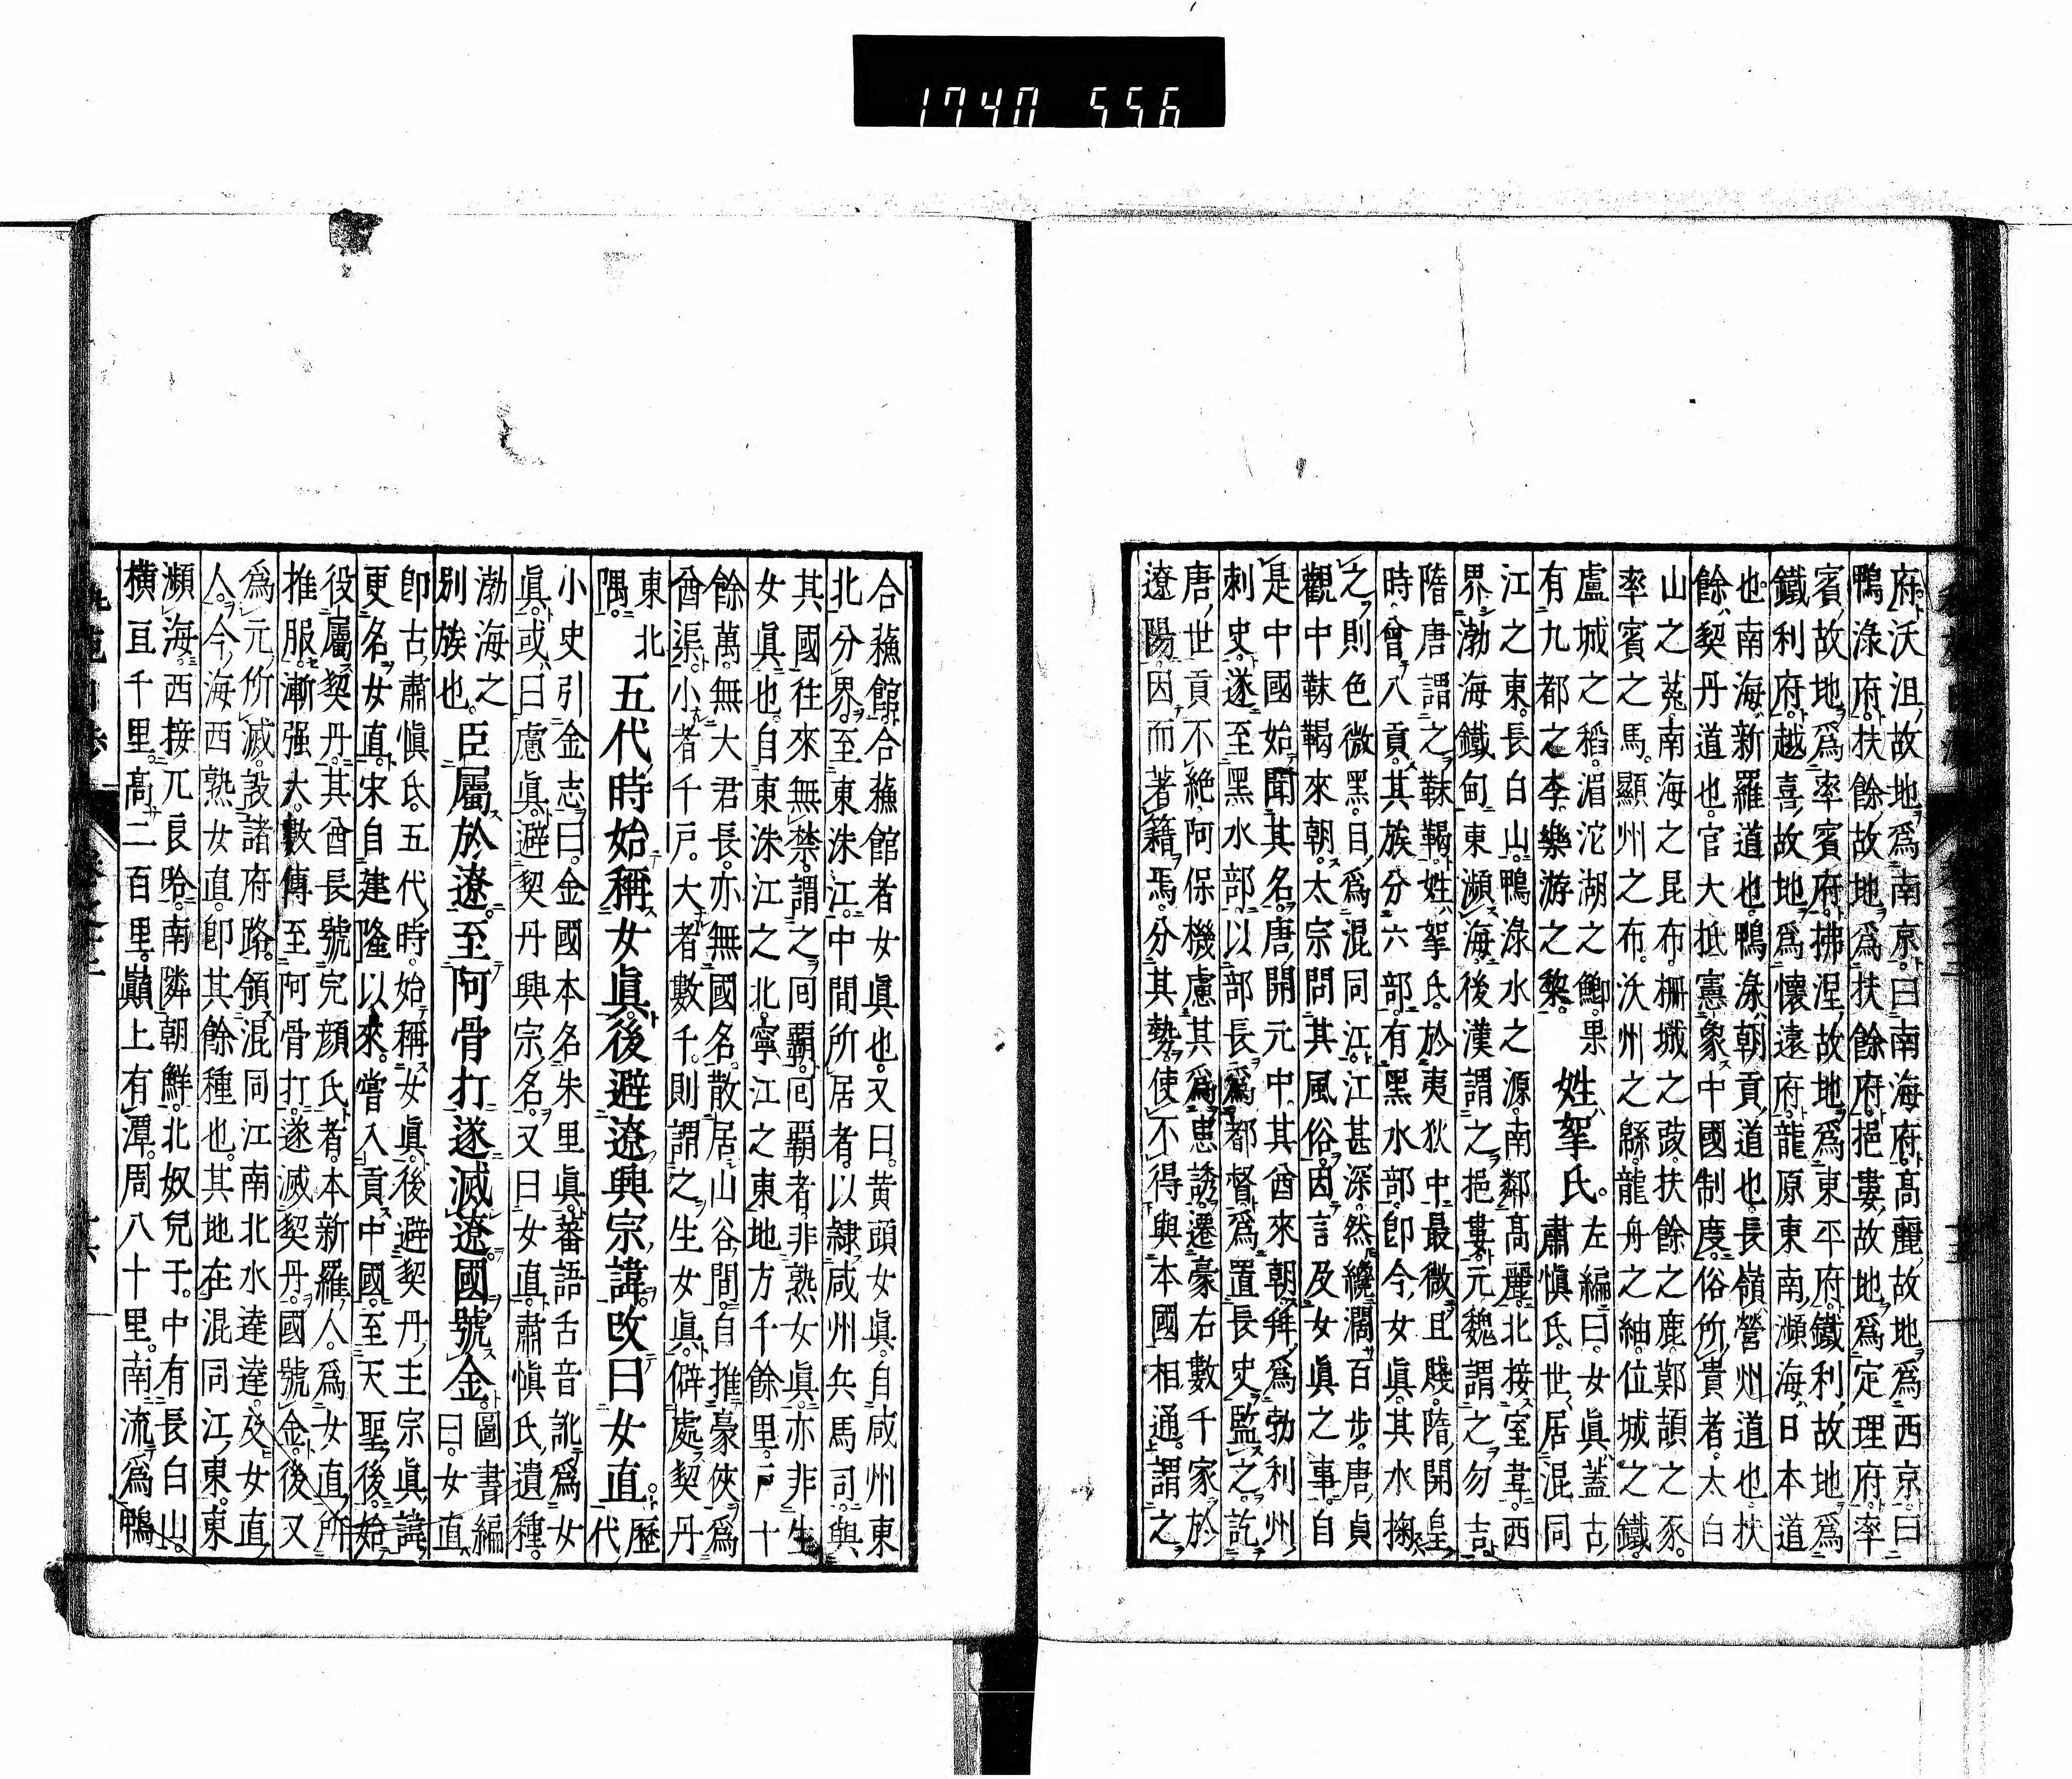 1740 556
府沃沮故地爲南京曰南海府高麗故地爲西京曰
鴨淥府扶餘故地爲扶餘府挹婁故地爲定理府率
賓故地爲率賓府拂涅故地爲東平府鐵利故地爲
鐵利府越喜故地爲懷遠府龍原東南瀕海日本道
也南海新羅道也鴨淥朝貢道也長嶺營州道也扶
餘契丹道也官大抵憲象中國制度俗所貴者太白
山之菟南海之昆布柵城之豉扶餘之鹿鄚頡之豕
率賓之馬顯州之布沃州之緜龍舟之紬位城之鐵
盧城之稻湄沱湖之鯽果
有九都之李樂游之梨
姓拏氏
左編曰女眞蓋古
肅愼氏世居混同
江之東長白山鴨淥水之源南鄰髙麗北接室韋西
界渤海鐵甸東瀕海後漢謂之挹婁元魏謂之勿吉
隋唐謂之靺鞨姓拏氏於夷狄中最微且賤隋開皇
時曾入貢其族分六部有黑水部卽今女眞其水掬
之則色微黑目爲混同江江甚深然纔濶百步唐貞
觀中靺鞨來朝太宗問其風俗因言及女眞之事自
是中國始聞其名唐開元中其酋來朝拜爲勃利州
刺史遂至黑水部以部長爲都督爲置長史監之訖
唐世貢不絶阿保機慮其爲患誘遷豪右數千家於
遼陽因而著籍焉分其勢使不得與本國相通謂之
合蘓館合蘓館者女眞也又曰黄頭女眞自咸州東
北分界至東洙江中間所居者以隷咸州兵馬司與
其國往來無禁謂之囘覇囘覇者非熟女眞亦非生
女眞也自東洙江之北寧江之東地方千餘里戸十
餘萬無大君長亦無國名散居山谷間自推豪俠爲
酋渠小者千戸大者數千則謂之生女眞僻處契丹
東北
隅
五代時始稱女眞後避遼興宗諱改曰女直
歷
代
小史引金志曰金國本名朱里眞蕃語舌音訛爲女
眞或曰慮眞避契丹興宗名又曰女直肅愼氏遺種
渤海之
別族也
臣屬於遼至阿骨打遂滅遼國號金
圖書編
曰女直
卽古肅愼氏五代時始稱女眞後避契丹主宗眞諱
更名女直宋自建隆以來嘗入貢中國至天聖後始
役屬契丹其酋長號完顔氏者本新羅人爲女直所
推服漸强大數傳至阿骨打遂滅契丹國號金後又
爲元所滅設諸府路領混同江南北水達達及女直
人今海西熟女直卽其餘種也其地在混同江東東
瀕海西接兀良哈南隣朝鮮北奴兒干中有長白山
横亘千里高二百里巔上有潭周八十里南流爲鴨